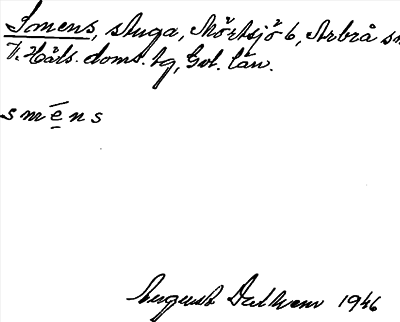 Smens, stuga, Mörtsjö 6, Arbrå sn
V. Häls. doms. tg, Gvl. län.
smēns
August Dahlman 1946